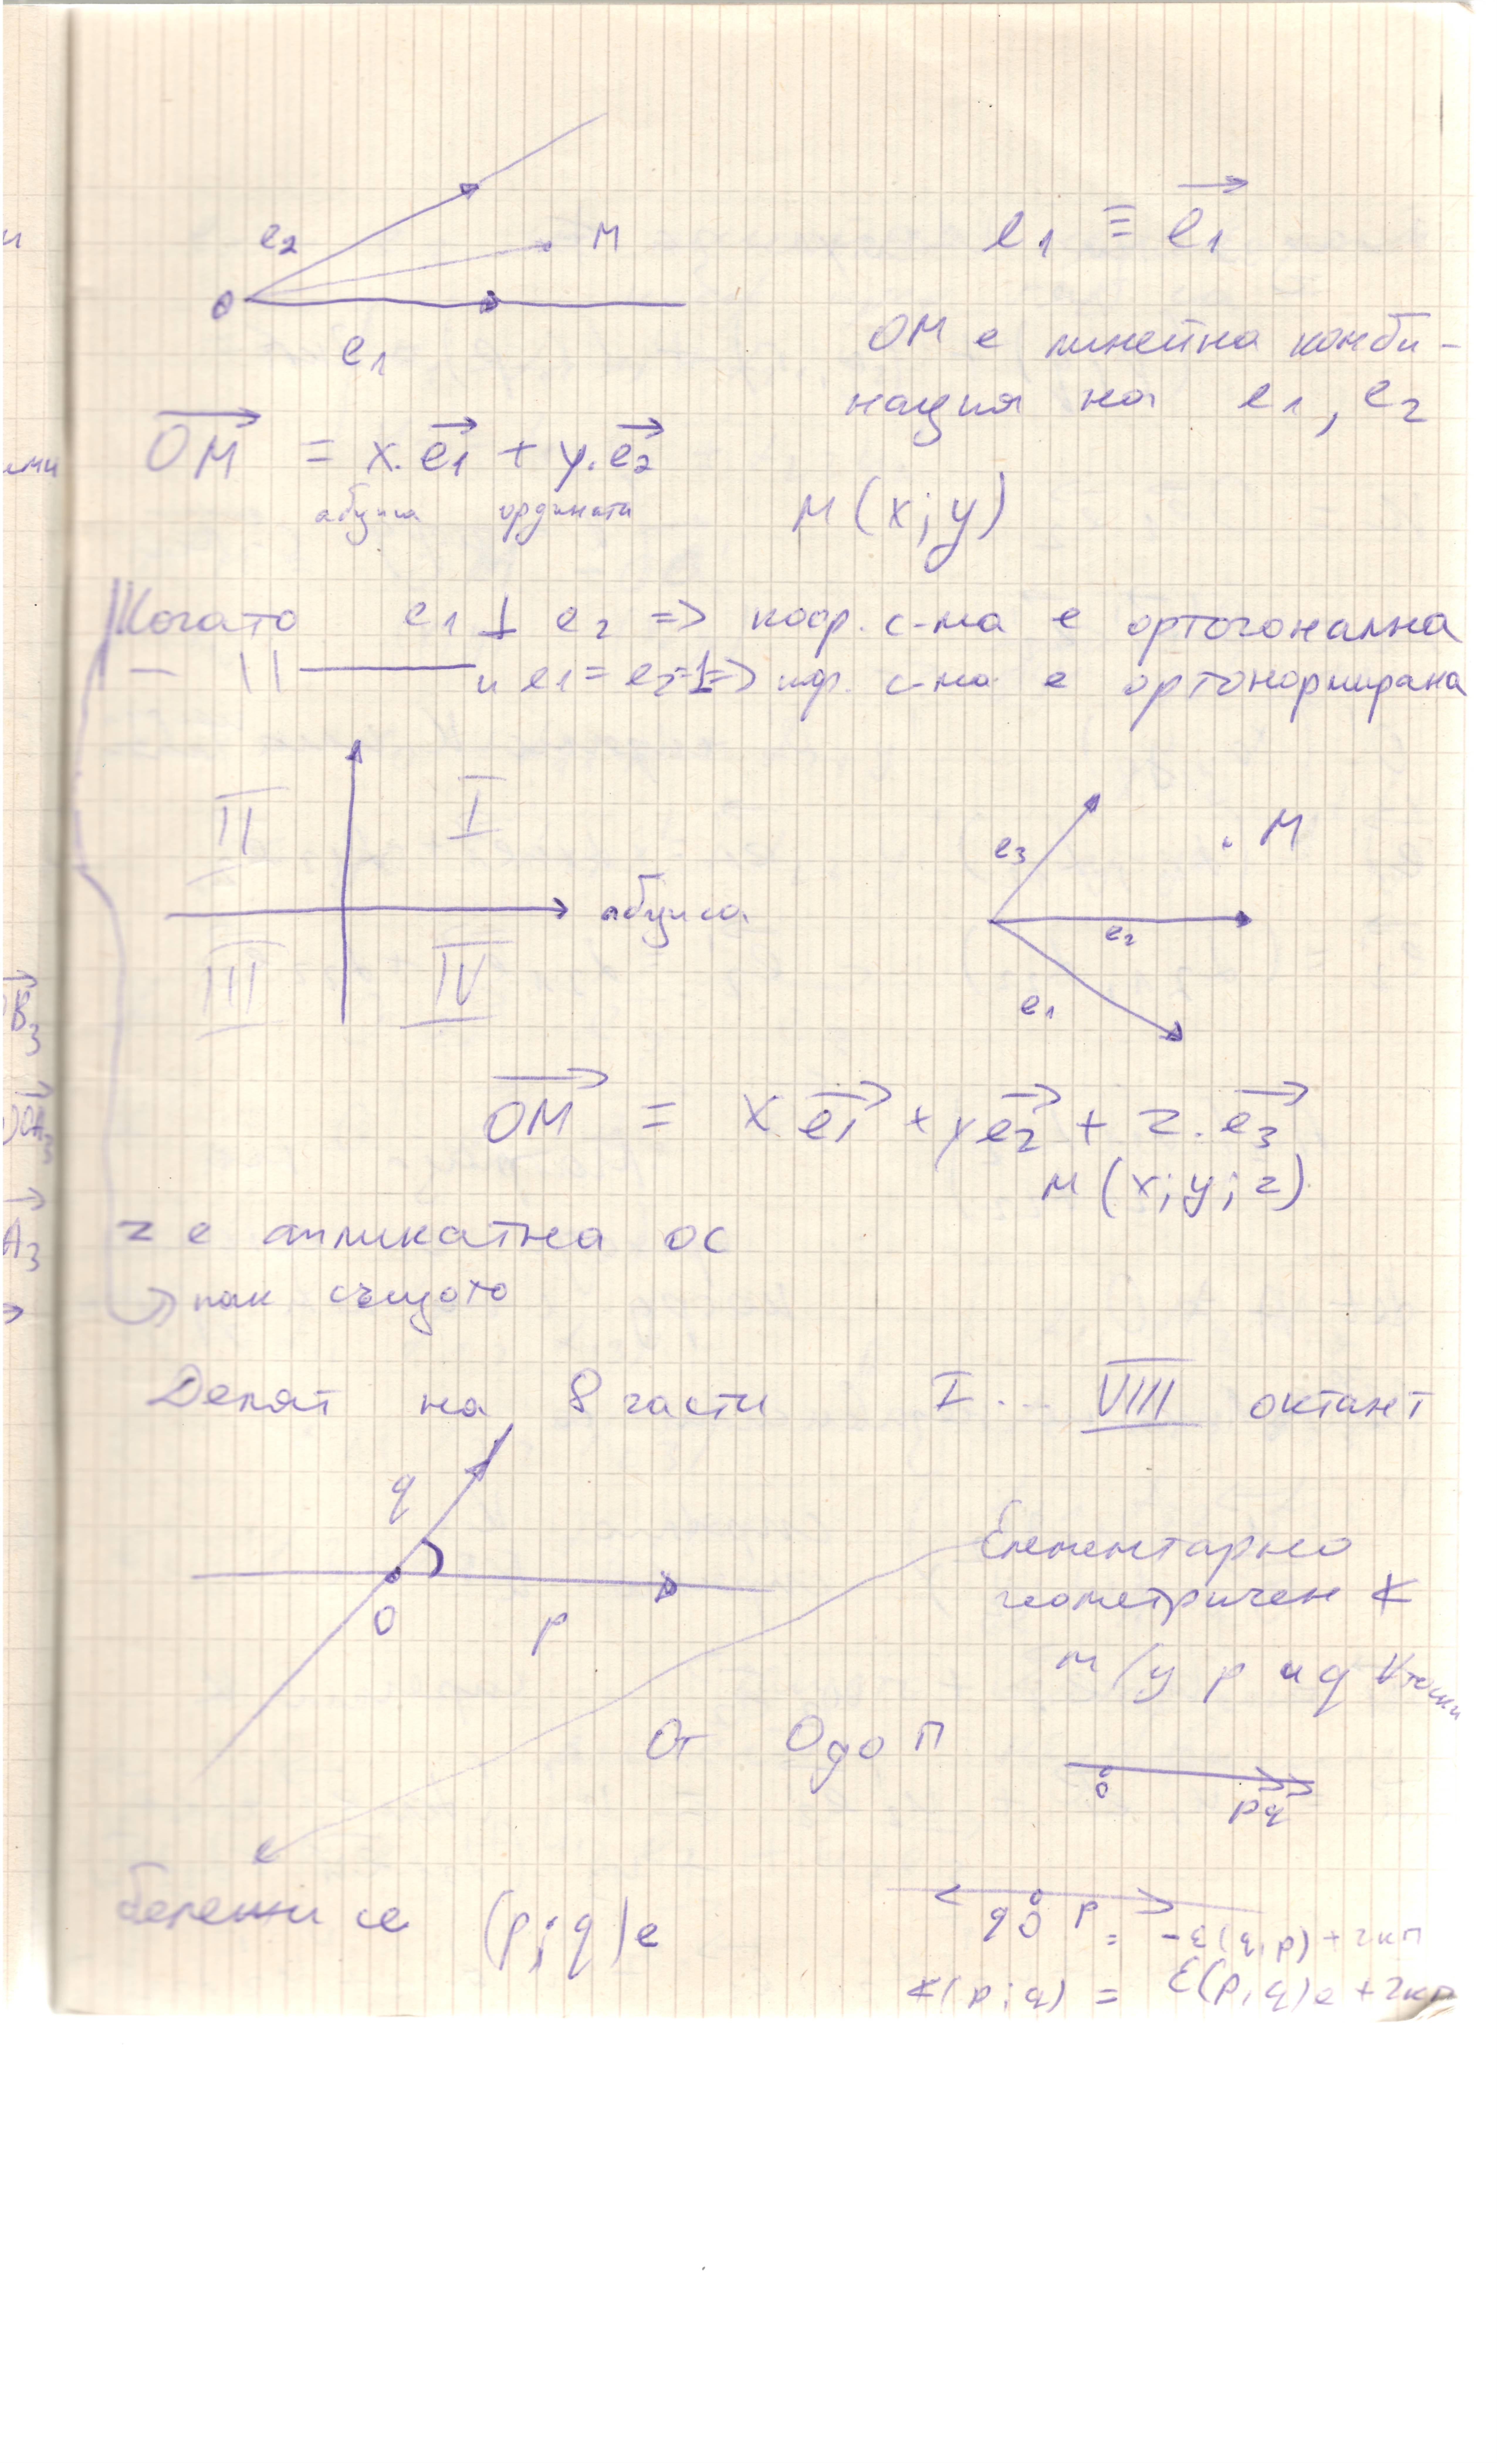 e₂
M
O
e₁
e₁ ≡ e₁→
OM е линейна комби-
нация на e₁, e₂
OM→ = x.e₁→ + y.e₂→
абциса ордината
M(x;y)
Когато e₁ ⊥ e₂ => коор. с-ма е ортогонална
— || — и e₁ = e₂ = 1 => кор. с-ма е ортонормирана
II I
абциса
III IV
e₃
M
e₂
e₁
OM→ = x e₁→ + y e₂→ + z.e₃→
M(x;y;z)
z е апликатна ос
пак същото
Делят на 8 части I... VIII октант
q
O
p
Елементарно
геометричен ∢
м/у p и q
От 0 до π
O
pq
бележи се (p;q)e
q O p
= -ε(q,p)+2kπ
∢(p;q) = ε(p,q)e+2kπ